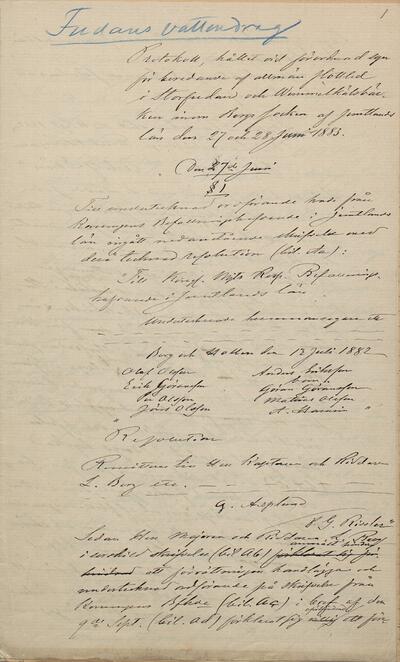 1
Fudans vattendrag
Protokoll, hållet vid förberedd syn
för beredande af allmän flottled
i Storfudan och Wemmelkälsbäc-
ken inom Bergs socken af Jemtlands
län den 27 och 28 Juni 1883.
Den 27de Juni
§ 1
Till undertecknad ordförande hade från
Konungens Befallningshafvande i Jemtlands
län ingått nedanstående skrifvelse med
derå tecknad resolution (bil. Aa):
"Till Kongl. Majts Resp. Befallnings-
hafvande i Jemtlands län.
Undertecknade hemmansegare etc
Berg och Hallen den 12 Juli 1882
Olof Olsson Anders Eriksson
Erik Göransson Göran Göransson
Per Olsson Mattias Olsson
Jöns Olsson A. "
Resolution
Remitteras till Herr Kaptenen och Riddaren
L. Berg etc.
G. Asplund
G. Rissler"
Sedan Herr Majoren och Riddaren L. Berg
i särskild skrifvelse (bil. Ab) anmält
att förrättningen handlägga och
undertecknad ordförande på skrifvelse från
Konungens Bfhde (bil. Ac) i bref af den
9de Sept. (bil. Ad) förklarat sig att för